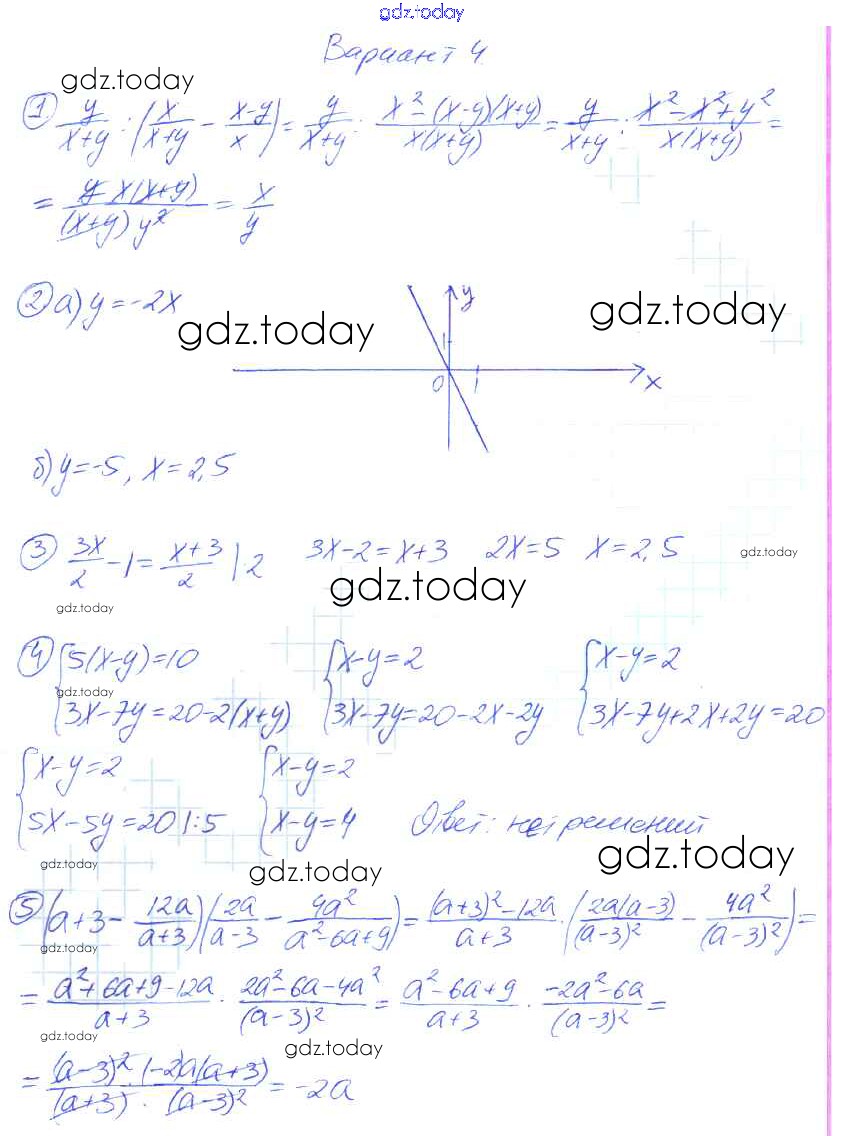 gdz.today
Вариант 4
gdz.today
① y/(x+y) : (x/(x+y) - (x-y)/x) = y/(x+y) : (x² - (x-y)(x+y))/(x(x+y)) = y/(x+y) : (x² - x² + y²)/(x(x+y)) =
= (y x(x+y))/((x+y) y²) = x/y
② а) y = -2x
gdz.today
gdz.today
y
1
0 1 x
б) y = -5, x = 2,5
③ 3x/2 - 1 = (x+3)/2 | 2 3x-2 = x+3 2x = 5 x = 2,5
gdz.today
gdz.today
gdz.today
④ { 5(x-y) = 10 { x-y = 2 { x-y = 2
gdz.today
3x-7y = 20-2(x+y) 3x-7y = 20-2x-2y 3x-7y+2x+2y = 20
{ x-y = 2 { x-y = 2
5x-5y = 20 |:5 x-y = 4 Ответ: нет решений
gdz.today
gdz.today
gdz.today
⑤ (a+3 - 12a/(a+3)) (2a/(a-3) - 4a²/(a²-6a+9)) = ((a+3)²-12a)/(a+3) · (2a(a-3)/(a-3)² - 4a²/(a-3)²) =
gdz.today
= (a²+6a+9-12a)/(a+3) · (2a²-6a-4a²)/(a-3)² = (a²-6a+9)/(a+3) · (-2a²-6a)/(a-3)² =
gdz.today
gdz.today
= ((a-3)² · (-2)a(a+3))/((a+3) · (a-3)²) = -2a